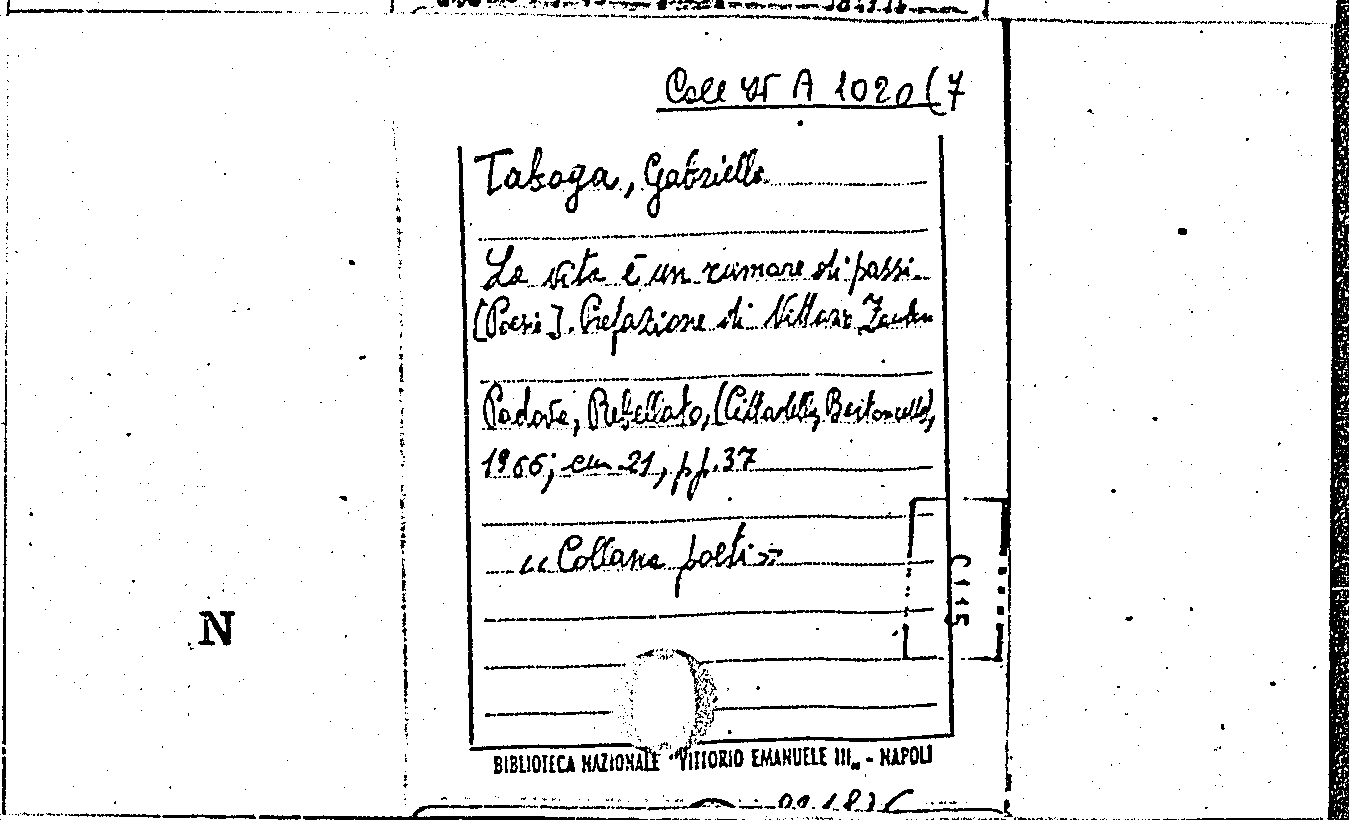 Coll. It A 1020 (7
Taboga, Gabriella
La vita è un rumore di passi.
[Poesie]. Prefazione di Vittorio
Padova, Rebellato, (Cittadella, Bertoncello),
1966; cm 21, pp. 37
«Collana poeti»
C 115
N
BIBLIOTECA NAZIONALE "VITTORIO EMANUELE III„ - NAPOLI